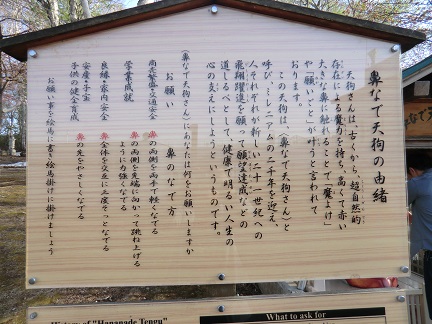 鼻なで天狗の由緒
天狗さんは古くから、超自然的
存在による魔力を持ち、高くて赤い
大きな鼻に触れることで「魔よけ」
や「願いごと」が叶うと言われて
おります。
この天狗は〈鼻なで天狗さん〉と
呼び、ミレニアムの二千年を迎え、
人それぞれが新しい二十一世紀への
飛翔躍進を願って願望達成などの
道しるべとして、健康で明るい人生の
心の支えにしようというものです。
〈鼻なで天狗さん〉にあなたは何をお願いしますか
お願い 鼻のなで方
商売繁盛・交通安全 鼻の両側を両手で軽くなでる
学業成就 鼻の両側を先端に向かって跳ね上げる
ようにやや強くなでる
良縁・家内安全 鼻全体を交互に三度そっとなでる
安産・子宝 鼻の先をやさしくなでる
子供の健全育成
お願い事を絵馬に書き絵馬掛けに掛けましょう
History of "Hananade Tengu"
What to ask for